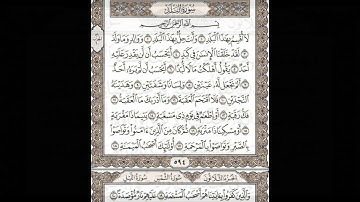 سُورَةُ البَلَدِ
بِسْمِ اللَّهِ الرَّحْمَٰنِ الرَّحِيمِ
لَا أُقْسِمُ بِهَٰذَا الْبَلَدِ ۝١ وَأَنتَ حِلٌّ بِهَٰذَا الْبَلَدِ ۝٢ وَوَالِدٍ وَمَا وَلَدَ
۝٣ لَقَدْ خَلَقْنَا الْإِنسَٰنَ فِي كَبَدٍ ۝٤ أَيَحْسَبُ أَن لَّن يَقْدِرَ عَلَيْهِ
أَحَدٌ ۝٥ يَقُولُ أَهْلَكْتُ مَالًا لُّبَدًا ۝٦ أَيَحْسَبُ أَن لَّمْ يَرَهُ أَحَدٌ
۝٧ أَلَمْ نَجْعَل لَّهُ عَيْنَيْنِ ۝٨ وَلِسَانًا وَشَفَتَيْنِ ۝٩ وَهَدَيْنَٰهُ
النَّجْدَيْنِ ۝١٠ فَلَا اقْتَحَمَ الْعَقَبَةَ ۝١١ وَمَا أَدْرَىٰكَ مَا الْعَقَبَةُ ۝١٢
فَكُّ رَقَبَةٍ ۝١٣ أَوْ إِطْعَٰمٌ فِي يَوْمٍ ذِي مَسْغَبَةٍ ۝١٤ يَتِيمًا ذَا مَقْرَبَةٍ
۝١٥ أَوْ مِسْكِينًا ذَا مَتْرَبَةٍ ۝١٦ ثُمَّ كَانَ مِنَ الَّذِينَ ءَامَنُوا وَتَوَاصَوْا
بِالصَّبْرِ وَتَوَاصَوْا بِالْمَرْحَمَةِ ۝١٧ أُولَٰئِكَ أَصْحَٰبُ الْمَيْمَنَةِ ۝١٨
٥٩٤
الجُزءُ الثَّلَاثُونَ سُورَةُ الشَّمْسِ سُورَةُ اللَّيْلِ
وَالَّذِينَ كَفَرُوا بِـَٔايَٰتِنَا هُمْ أَصْحَٰبُ الْمَشْـَٔمَةِ ۝١٩ عَلَيْهِمْ نَارٌ مُّؤْصَدَةٌ ۝٢٠